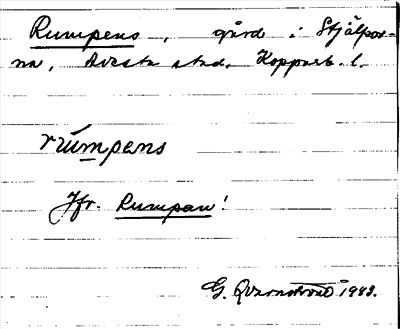 Rumpens, gård i Stjälpar-
na, Avesta stad. Kopparb. l.
rùmpens
Jfr. Rumpan!
G. Qvarnström 1943.